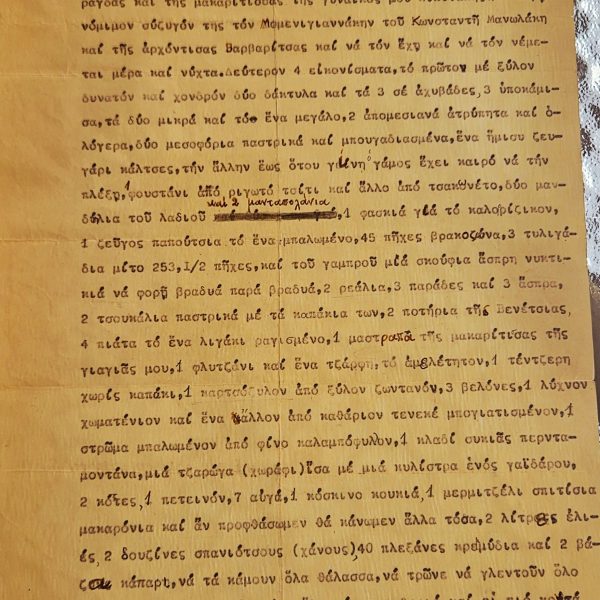 ραγδας καί τῆς μακαρίτισσας τῆς γυναίκας μου
νόμιμον σύζυγόν της τόν Μομενιγιαννάκην τοῦ Κωνσταντῆ Μανωλάκη
καί τῆς ἀρχόντισας Βαρβαρίτσας καί νά τόν ἔχῃ καί νά τόν νέμε-
ται μέρα καί νύχτα.Δεύτερον 4 εἰκονίσματα,τό πρῶτον μέ ξύλον
δυνατόν καί χονδρόν δύο δάκτυλα καί τά 3 σέ ἀχυβάδες,3 ὑποκάμι-
σα,τά δύο μικρά καί τό ἕνα μεγάλο,2 ἀπομεσιανά ἀτρύπητα καί ὁ-
λόγερα,δύο μεσοφόρια παστρικά καί μπουγαδιασμένα,ἕνα ἥμισυ ζευ-
γάρι κάλτσες,τήν ἄλλην ἕως ὅτου γίνη ὁ γάμος ἔχει καιρό νά τήν
πλέξῃ,1 φουστάνι ἀπό ριγωτό τσίτι καί ἄλλο ἀπό τσακονέτο,δύο μαν-
δύλια τοῦ λαδιοῦ καί 2 μανταπολάνια,1 φασκιά γιά τό καλορίζικον,
1 ζεῦγος παπούτσια τό ἕνα μπαλωμένο,45 πῆχες βρακοζώνα,3 τυλιγά-
δια μίτο 253,1/2 πῆχες,καί τοῦ γαμπροῦ μιά σκούφια ἄσπρη νυκτι-
κιά νά φορῇ βραδυά παρά βραδυά,2 ρεάλια,3 παράδες καί 3 ἄσπρα,
2 τσουκάλια παστρικά μέ τά καπάκια των,2 ποτήρια τῆς Βενέτσιας,
4 πιάτα τό ἕνα λιγάκι ραγισμένο,1 μαστραπά τῆς μακαρίτισας τῆς
γιαγιᾶς μου,1 φλυτζάνι καί ἕνα τζάρφη,τό ἀμελέτητον,1 τέντζερη
χωρίς καπάκι,1 καρτσόξυλον ἀπό ξύλον ζωντανόν,3 βελόνες,1 λύχνον
χωματένιον καί ἕνα ἄλλον ἀπό καθάριον τενεκέ μπογιατισμένον,1
στρῶμα μπαλωμένον ἀπό φίνο καλαμπόφυλον,1 κλαδί συκιᾶς περντα-
μοντάνα,μιά τζαρώγα (χωράφι)ἴσα μέ μιά κυλίστρα ἑνός γαϊδάρου,
2 κότες,1 πετεινόν,7 αὐγά,1 κόσκινο κουκιά,1 μερμιτζέλι σπιτίσια
μακαρόνια καί ἄν προφθάσωμεν θά κάνωμεν ἄλλα τόσα,2 λίτρες ἐλι-
ές,2 δουζίνες σπανιότσους (χάνους)40 πλεξάνες κρεμύδια καί 2 βά-
ζα κάπαρι,νά τά κάμουν ὅλα θάλασσα,νά τρῶνε νά γλεντοῦν ὅλο